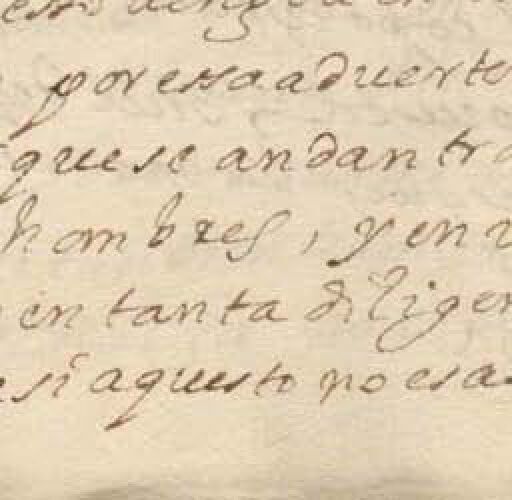 por essa aduerte
que se andan tra
hombres, y en v
en tanta diligen
si aquesto no esa